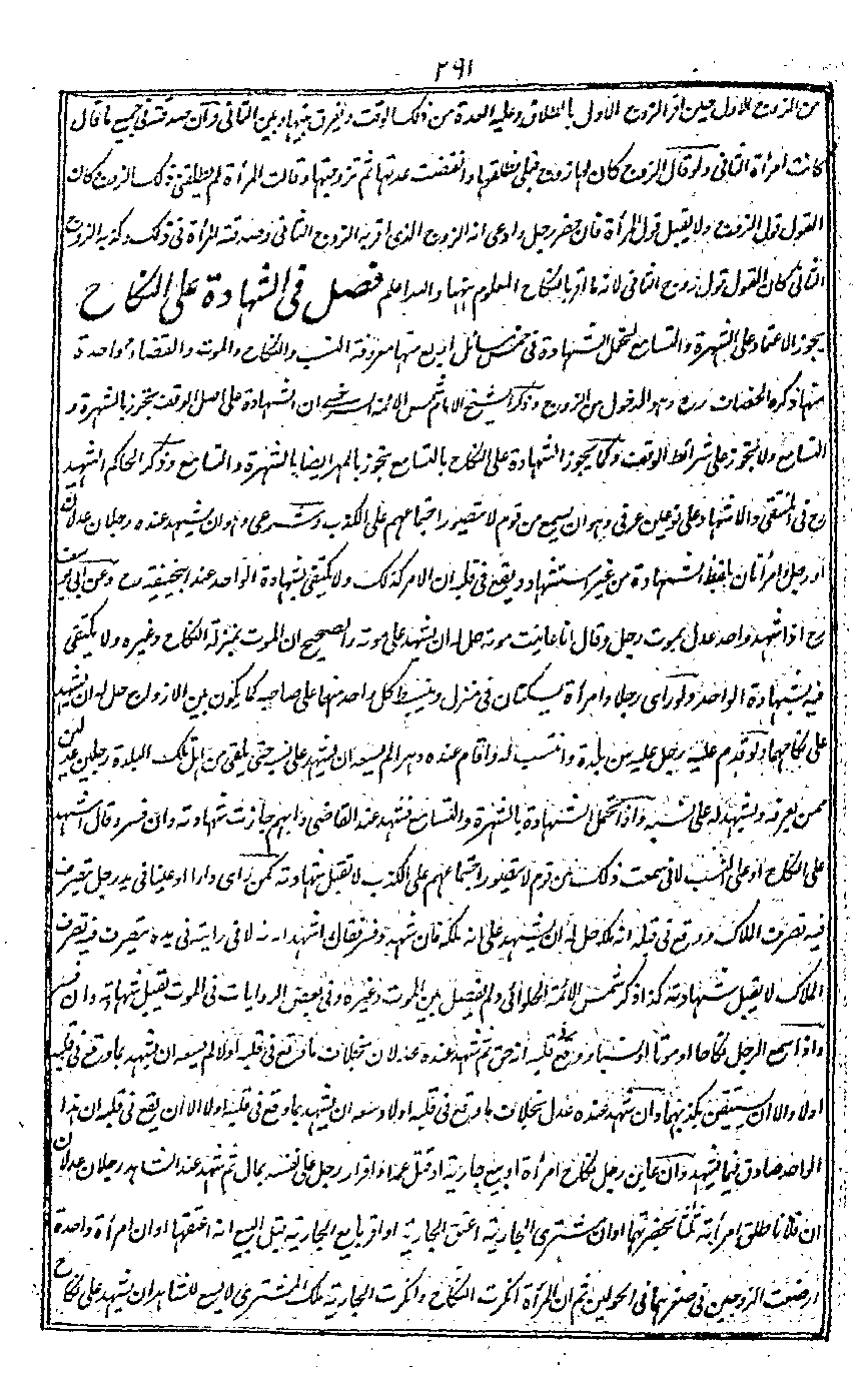 ۲۹۱
من الزوج الاول حين اقر الزوج الاول بالطلاق وعليه العدة من ذلك الوقت ويفرق بينها وبين الثانى وان صدقته فى جميع ما قال
كانت امرأة الثانى ولو قال الزوج كان لها زوج قبلى طلقها وانقضت عدتها ثم تزوجتها وقالت المرأة لم يطلقنى ذلك الزوج كان
القول قول الزوج ولا يقبل قول المرأة فان حضر رجل وادعى انه الزوج الذى اقر به الزوج الثانى وصدقته المرأة فى ذلك وكذبه الزوج
الثانى كان القول قول زوج الثانى لانه ما اقر بالنكاح المعلوم بينهما والله اعلم فصل فى الشهادة على النكاح
يجوز الاعتماد على الشهرة والتسامع لتحمل الشهادة فى خمس مسائل اربع منها معروفة النسب والنكاح والموت والقضاء وواحدة
منها ذكره الخصاف رح وهو الدخول من الزوج وذكر الشيخ الامام شمس الائمة السرخسى ان الشهادة على اصل الوقف تجوز بالشهرة و
التسامع ولا تجوز على شرائط الوقف وكما يجوز الشهادة على النكاح بالتسامع تجوز بالمهر ايضا بالشهرة والتسامع وذكر الحاكم الشهيد
رح فى المنتقى والاشتهار على نوعين عرفى وهو ان يسمع من قوم لا يتصور اجتماعهم على الكذب وشرعى وهو ان يشهد عنده رجلان عدلان
او رجل وامرأتان بلفظ الشهادة من غير استشهاد ويقع فى قلبه ان الامر كذلك ولا يكتفى بشهادة الواحد عند ابيحنيفة رح وعن ابى يوسف
رح اذا شهد واحد عدل بموت رجل وقال انا عاينت موته حل له ان يشهد على موته والصحيح ان الموت بمنزلة النكاح وغيره ولا يكتفى
فيه بشهادة الواحد ولو راى رجلا وامرأة يسكنان فى منزل وينبسط كل واحد منهما على صاحبه كما يكون بين الازواج حل له ان يشهد
على نكاحهما ولو قدم عليه رجل من بلدة وانتسب له واقام عنده دهرا لم يسعه ان يشهد على نسبه حتى يلقى من اهل تلك البلدة رجلين عدلين
ممن يعرفه ويشهد له على نسبه واذا تحمل الشهادة بالشهرة والتسامع فشهد عند القاضى وابهم جازت شهادته وان فسر وقال اشهد
على النكاح او على النسب لانى سمعت ذلك من قوم لا يتصور اجتماعهم على الكذب لا تقبل شهادته كمن راى دارا او عينا فى يد رجل يتصرف
فيه تصرف الملاك ووقع فى قلبه انه ملكه حل له ان يشهد على انه ملكه فان شهد وفسر فقال اشهد انه له لانى رايته فى يده يتصرف فيه تصرف
الملاك لا يقبل شهادته كذا ذكر شمس الائمة الحلوائى ولم يفصل بين الموت وغيره وفى بعض الروايات فى الموت يقبل شهادته وان فسر
واذا سمع الرجل نكاحا او موتا او نسبا ووقع فى قلبه انه حق ثم شهد عنده عدلان بخلاف ما وقع فى قلبه اولا لم يسعه ان يشهد بما وقع فى قلبه
اولا والا ان يستيقن بكذبهما وان شهد عنده عدل بخلاف ما وقع فى قلبه اولا وسعه ان يشهد بما وقع فى قلبه اولا الا ان يقع فى قلبه ان هذا
الواحد صادق فيما يشهد وان عاين رجل نكاح امرأة او بيع جارية او قتل عمدا او اقرار رجل على نفسه بمال ثم شهد عند الشاهد رجلان عدلان
ان فلانا طلق امرأته ثلثا بحضرتهما او ان مشترى الجارية اعتق الجارية او اقر بايع الجارية قبل البيع انه اعتقها او ان امرأة واحدة
ارضعت الزوجين فى صغرهما فى الحولين ثم ان المرأة انكرت النكاح وانكرت الجارية ملك المشترى لا يسع للشاهد ان يشهد على نكاح